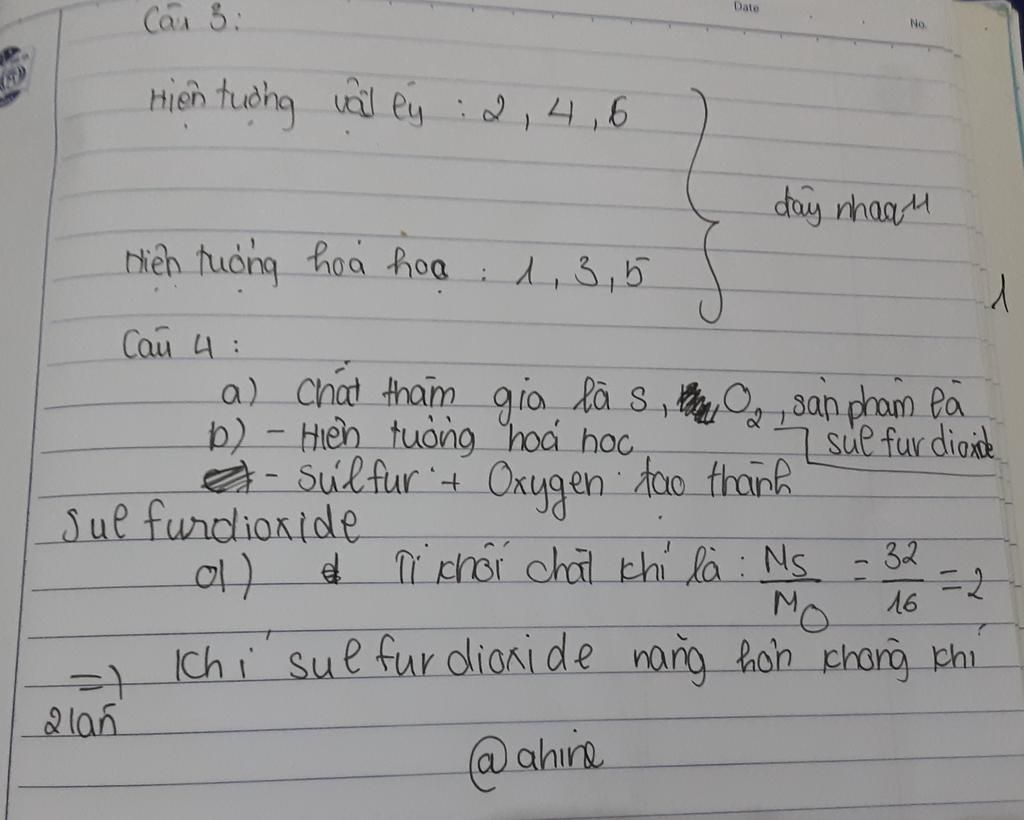 Date
No.
Câu 3:
Hiện tượng vật lý : 2, 4, 6
đây nhaa
Hiện tượng hoá học : 1, 3, 5
1
Câu 4 :
a) Chất tham gia là S, O2, sản phẩm là
sulfur dioxide
b) - Hiện tượng hoá học
- Sulfur + Oxygen tạo thành
sulfurdioxide
d) Tỉ khối chất khí là : MS/MO = 32/16 = 2
=) Khí sulfurdioxide nặng hơn không khí
2 lần
@ahine